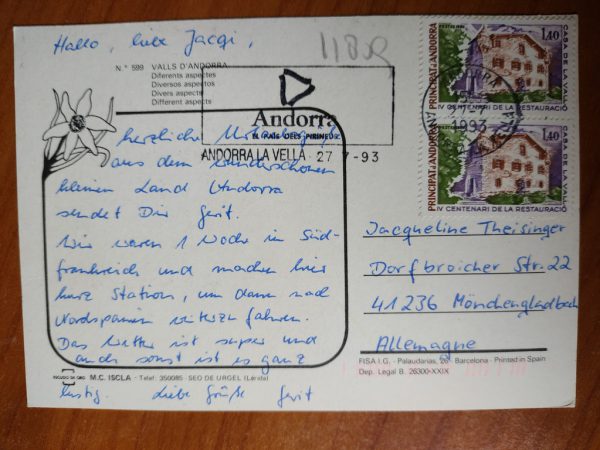 Hallo, liebe Jacqi,
1180
N.º 599 VALLS D'ANDORRA
Diferents aspectes
Diversos aspectos
Divers aspects
Different aspects
Andorra
EL PAÍS DELS PIRINEUS
ANDORRA LA VELLA 27 7-93
1993
PRINCIPAT d'ANDORRA
CASA DE LA VALL
1,40
IV CENTENARI DE LA RESTAURACIÓ
PRINCIPAT d'ANDORRA
CASA DE LA VALL
1,40
IV CENTENARI DE LA RESTAURACIÓ
herzliche Urlaubsgrüße
aus dem wunderschönen
kleinen Land Andorra
sendet Dir Gerit.
Wir waren 1 Woche in Süd-
frankreich und machen hier
kurz Station, um dann nach
Nordspanien weiterzufahren.
Das Wetter ist super und
auch sonst ist es ganz
lustig. Liebe Grüße Gerit
Jacqueline Theisinger
Dorfbroicher Str. 22
41236 Mönchengladbach
Allemagne
ESCUDO DE ORO M.C. ISCLA - Telef. 350085 - SEO DE URGEL (Lérida)
FISA I.G. - Palaudarias, 26 - Barcelona - Printed in Spain
Dep. Legal B. 26300-XXIX